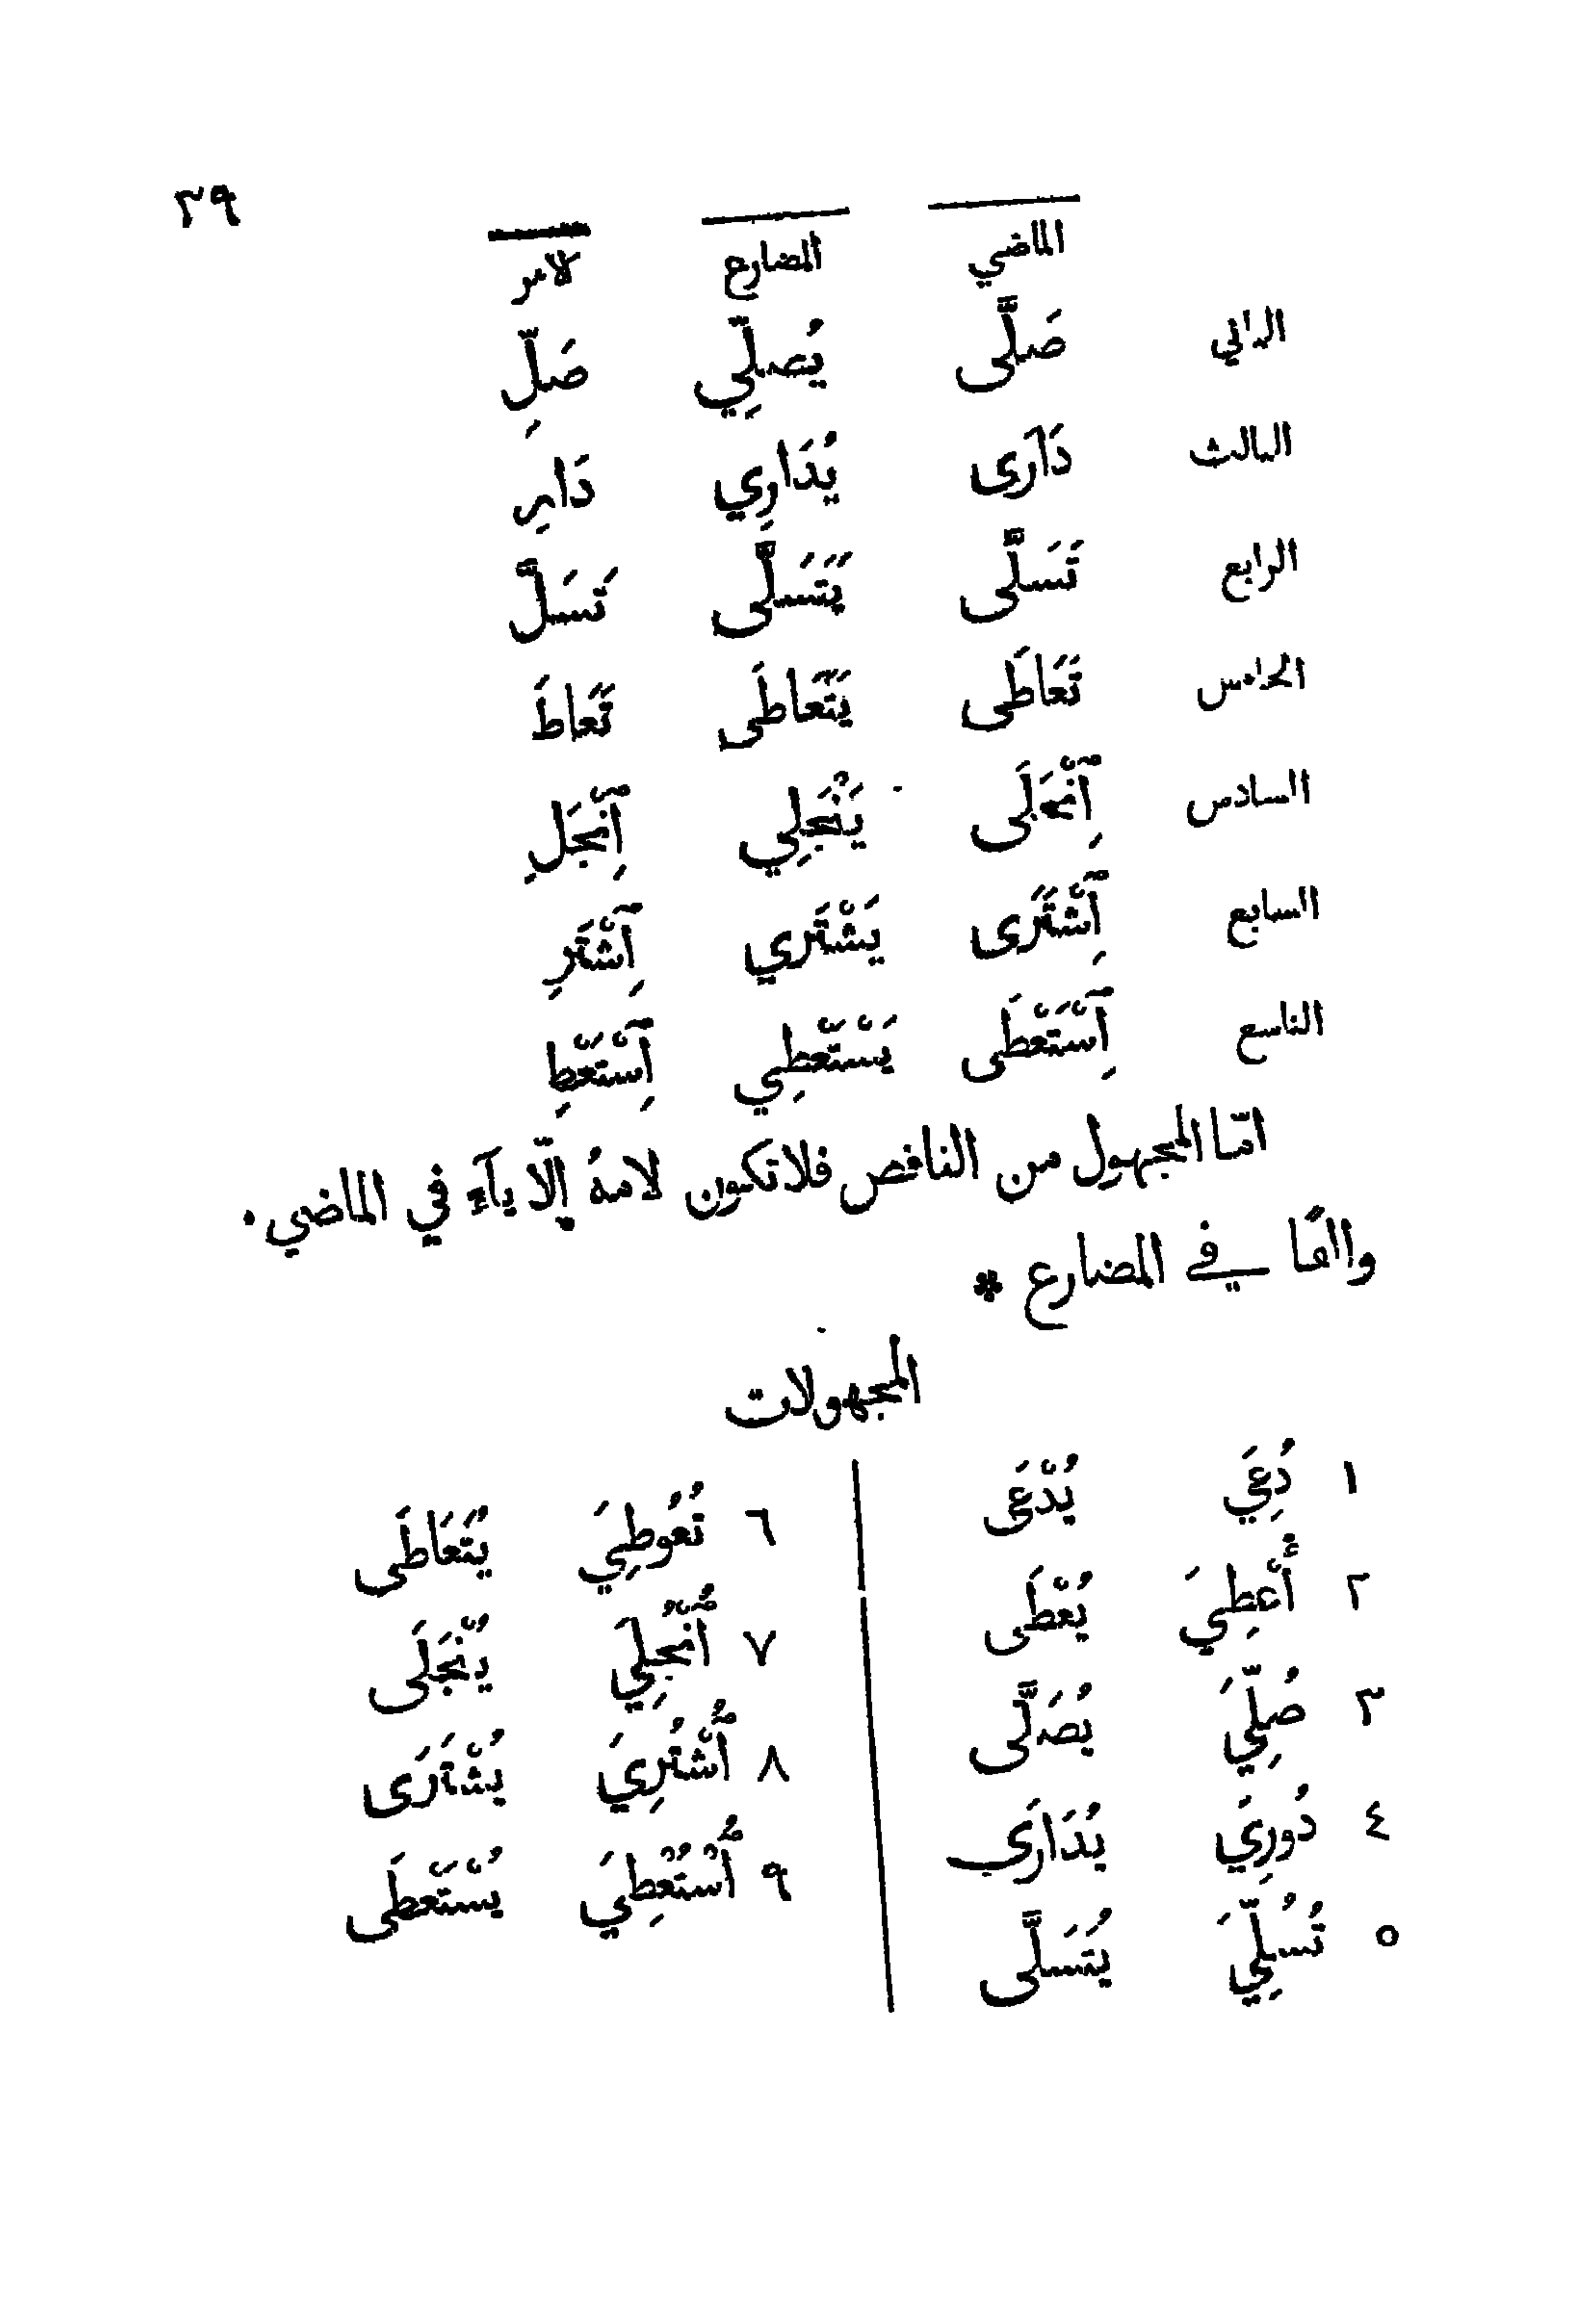 ٣٩
الماضي المضارع الامر
الثاني صَلَّى يُصلِّي صَلِّ
الثالث دَارَى يُدَارِي دَارِ
الرابع تَسَلَّى يَتَسَلَّى تَسَلَّ
الخامس تَعَاطَى يَتَعَاطَى تَعَاطَ
السادس اِنْجَلَى يَنْجَلِي اِنْجَلِ
السابع اِشْتَرَى يَشْتَرِي اِشْتَرِ
التاسع اِسْتَعْطَى يَسْتَعْطِي اِسْتَعْطِ
امّا المجهول من الناقص فلا تكون لامهُ اِلّا يآءً في الماضي.
والفًا في المضارع *
المجهولات
١ دُعِيَ يُدْعَى
٢ أُعْطِيَ يُعْطَى
٣ صُلِّيَ يُصَلَّى
٤ دُورِيَ يُدَارَى
٥ تُسُلِّيَ يُتَسَلَّى
٦ تُعُوطِيَ يُتَعَاطَى
٧ اُنْجُلِيَ يُنْجَلَى
٨ اُشْتُرِيَ يُشْتَرَى
٩ اُسْتُعْطِيَ يُسْتَعْطَى